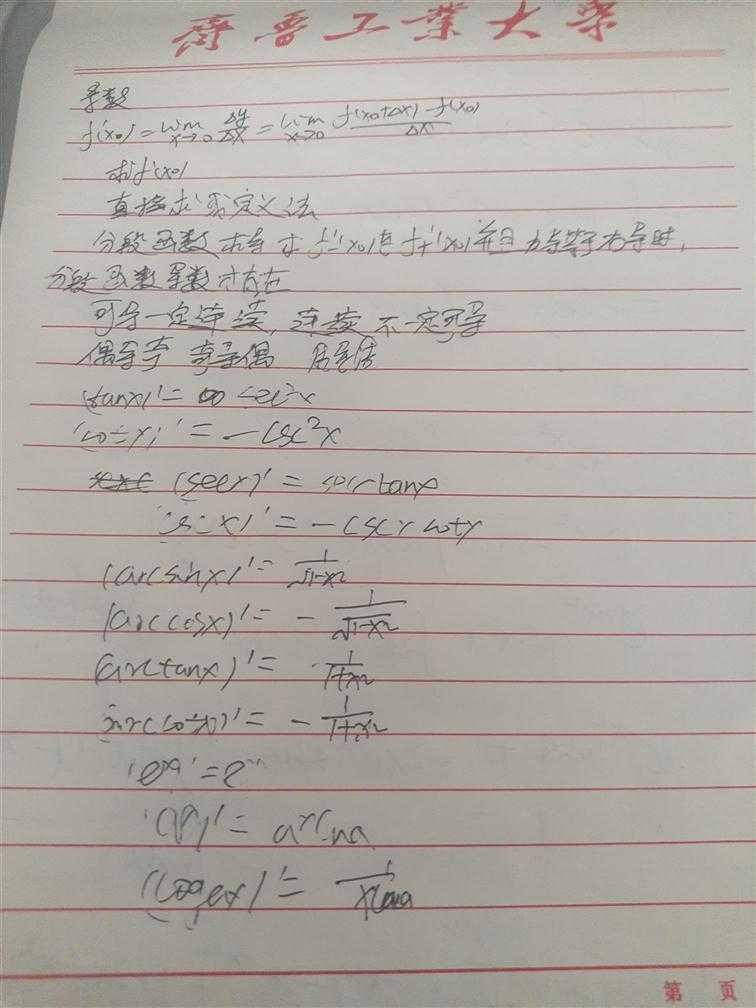 齐鲁工业大学
导数
f'(x₀) = lim x→0 Δy/Δx = lim x→0 f(x₀+Δx)-f(x₀)/Δx
求f'(x₀)
直接求 或定义法
分段函数 求导 求 f-'(x₀)与 f+'(x₀) 并且 左导等于右导时,
分段函数导数才存在
可导一定连续, 连续 不一定可导
偶导奇 奇导偶
(tanx)' = sec²x
(cotx)' = -csc²x
(secx)' = secxtanx
(cscx)' = -cscx cotx
(arcsinx)' = 1/√1-x²
(arccosx)' = - 1/√1-x²
(arctanx)' = 1/1+x²
(arccotx)' = - 1/1+x²
(eˣ)' = eˣ
(aˣ)' = aˣlna
1/xlna
第 页